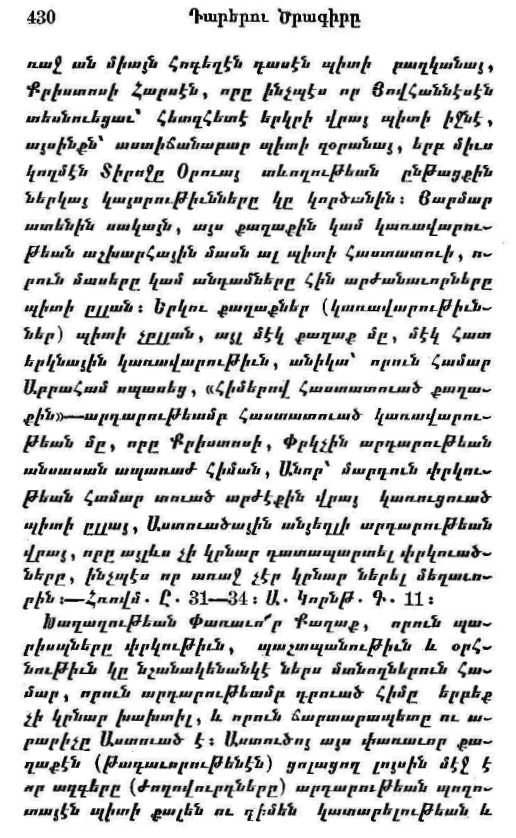 430 Դարերու Ծրագիրը
ռաջ ան միայն հոգեղէն դասէն պիտի բաղկանայ,
Քրիստոսի Հարսէն, որը ինչպէս որ Յովհաննէսէն
տեսնուեցաւ՝ հետզհետէ երկրի վրայ պիտի իջնէ,
այսինքն՝ աստիճանաբար պիտի զօրանայ, երբ միւս
կողմէն Տիրոջը Օրուայ տևողութեան ընթացքին
ներկայ կայսրութիւնները կը կործանին։ Յարմար
ատենին սակայն, այս քաղաքին կամ կառավարու-
թեան աշխարհային մասն ալ պիտի հաստատուի, ո-
րուն մասերը կամ անդամները հին արժանաւորները
պիտի ըլլան։ Երկու քաղաքներ (կառավարութիւն-
ներ) պիտի չըլլան, այլ մէկ քաղաք մը, մէկ հատ
երկնային կառավարութիւն, անիկա՝ որուն համար
Աբրահամ սպասեց, «Հիմերով հաստատուած քաղա-
քին»—արդարութեամբ հաստատուած կառավարու-
թեան մը, որը Քրիստոսի, Փրկչին արդարութեան
անսասան ապառաժ հիման, Անոր՝ մարդուն փրկու-
թեան համար տուած արժէքին վրայ կառուցուած
պիտի ըլլայ, Աստուածային անյեղլի արդարութեան
վրայ, որը այլևս չի կրնար դատապարտել փրկուած-
ները, ինչպէս որ առաջ չէր կրնար ներել մեղաւո-
րին։—Հռովմ. Ը. 31—34։ Ա. Կորնթ. Գ. 11։
Խաղաղութեան Փառաւո՜ր Քաղաք, որուն պա-
րիսպները փրկութիւն, պաշտպանութիւն և օրհ-
նութիւն կը նշանակենանկէ ներս մտնողներուն հա-
մար, որուն արդարութեամբ դրուած հիմը երբեք
չի կրնար խախտիլ, և որուն ճարտարապետը ու ա-
րարիչը Աստուած է։ Աստուծոյ այս փառաւոր քա-
ղաքէն (թագաւորութենէն) ցոլացող լոյսին մէջ է
որ ազգերը (ժողովուրդները) արդարութեան պողո-
տայէն պիտի քալեն ու դիմեն կատարելութեան և